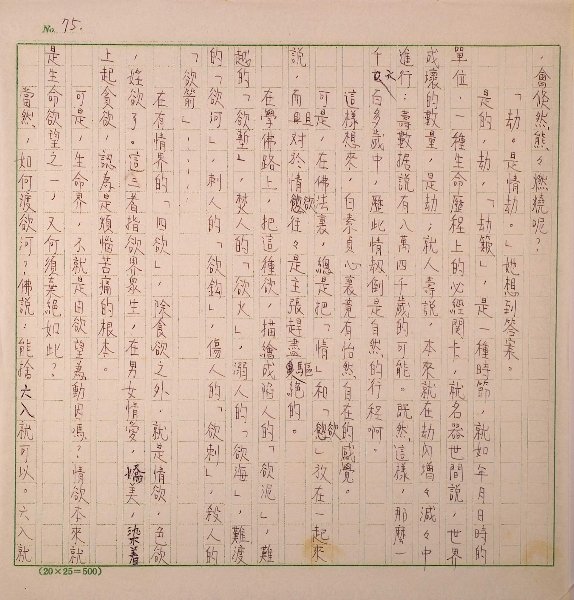 No. 75.
，會倏然熊々燃燒呢？
「劫。是情劫。」她想到答案。
是的，劫，「劫簸」，是一種時節，就如年月日時的
單位，一種生命歷程上的必經關卡，就名器世間說，世界
成壞的數量，是劫；就人壽說，本來就在劫內增々減々中
進行；壽數据說有八萬四千歲的可能。既然這樣，那麼一
千又百多歲中，歷此情劫倒是自然的行程啊。
這樣想來，白素貞心裏竟有怡然自在的感覺。
可是，在佛法裏，總是把「情」和「慾欲」放在一起來
說，而且對於情欲往々是主張趕盡驅絕的。
在學佛路上，把這種欲，描繪成陷人的「欲泥」，難
越的「欲塹」，焚人的「欲火」，溺人的「欲海」，難渡
的「欲河」，刺人的「欲鈎」，傷人的「欲刺」，殺人的
「欲箭」，．．．．
在有情界的「四欲」，除食欲之外，就是情欲，色欲
，婬欲了。這三者指欲界衆生，在男女情愛，嬌美，染着
上起貪欲，認為是煩惱苦痛的根本。
可是，生命界，不就是因欲望為動因嗎？情欲本來就
是生命欲望之一，又何須棄絕如此？
當然，如何渡欲河？佛說，能捨六入就可以。六入就
(20×25=500)